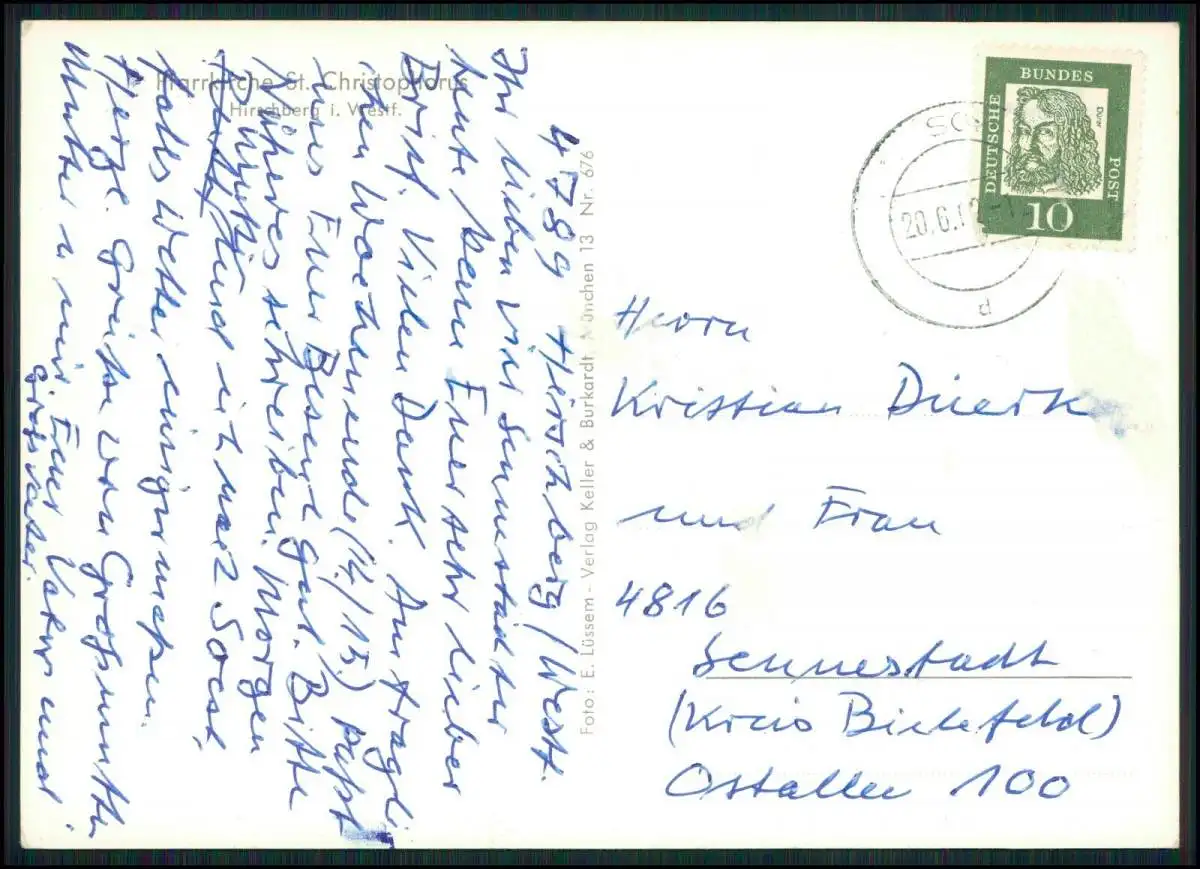 Pfarrkirche St. Christophorus
Hirschberg i. Westf.
4789 Hirschberg/Westf.
Ihr lieben vier Sennestädter
heute kam Euer sehr lieber
Brief. Vielen Dank. Am fragli-
chen Wochenende (14./15.) paßt
uns Euer Besuch gut. Bitte
Näheres schreiben. Morgen
Hund ich nach Soest,
falls Wetter einigermaßen.
Herzl. Grüße von Großmutter
Mutter u mir Euer Vater und
Großvater.
Foto: E. Lüssem - Verlag Keller & Burkardt, München 13 Nr. 676
DEUTSCHE
BUNDES
POST
Dürer
10
20.6.
d
Herrn
Kristian Duerk
und Frau
4816
Sennestadt
(Kreis Bielefeld)
Ostallee 100